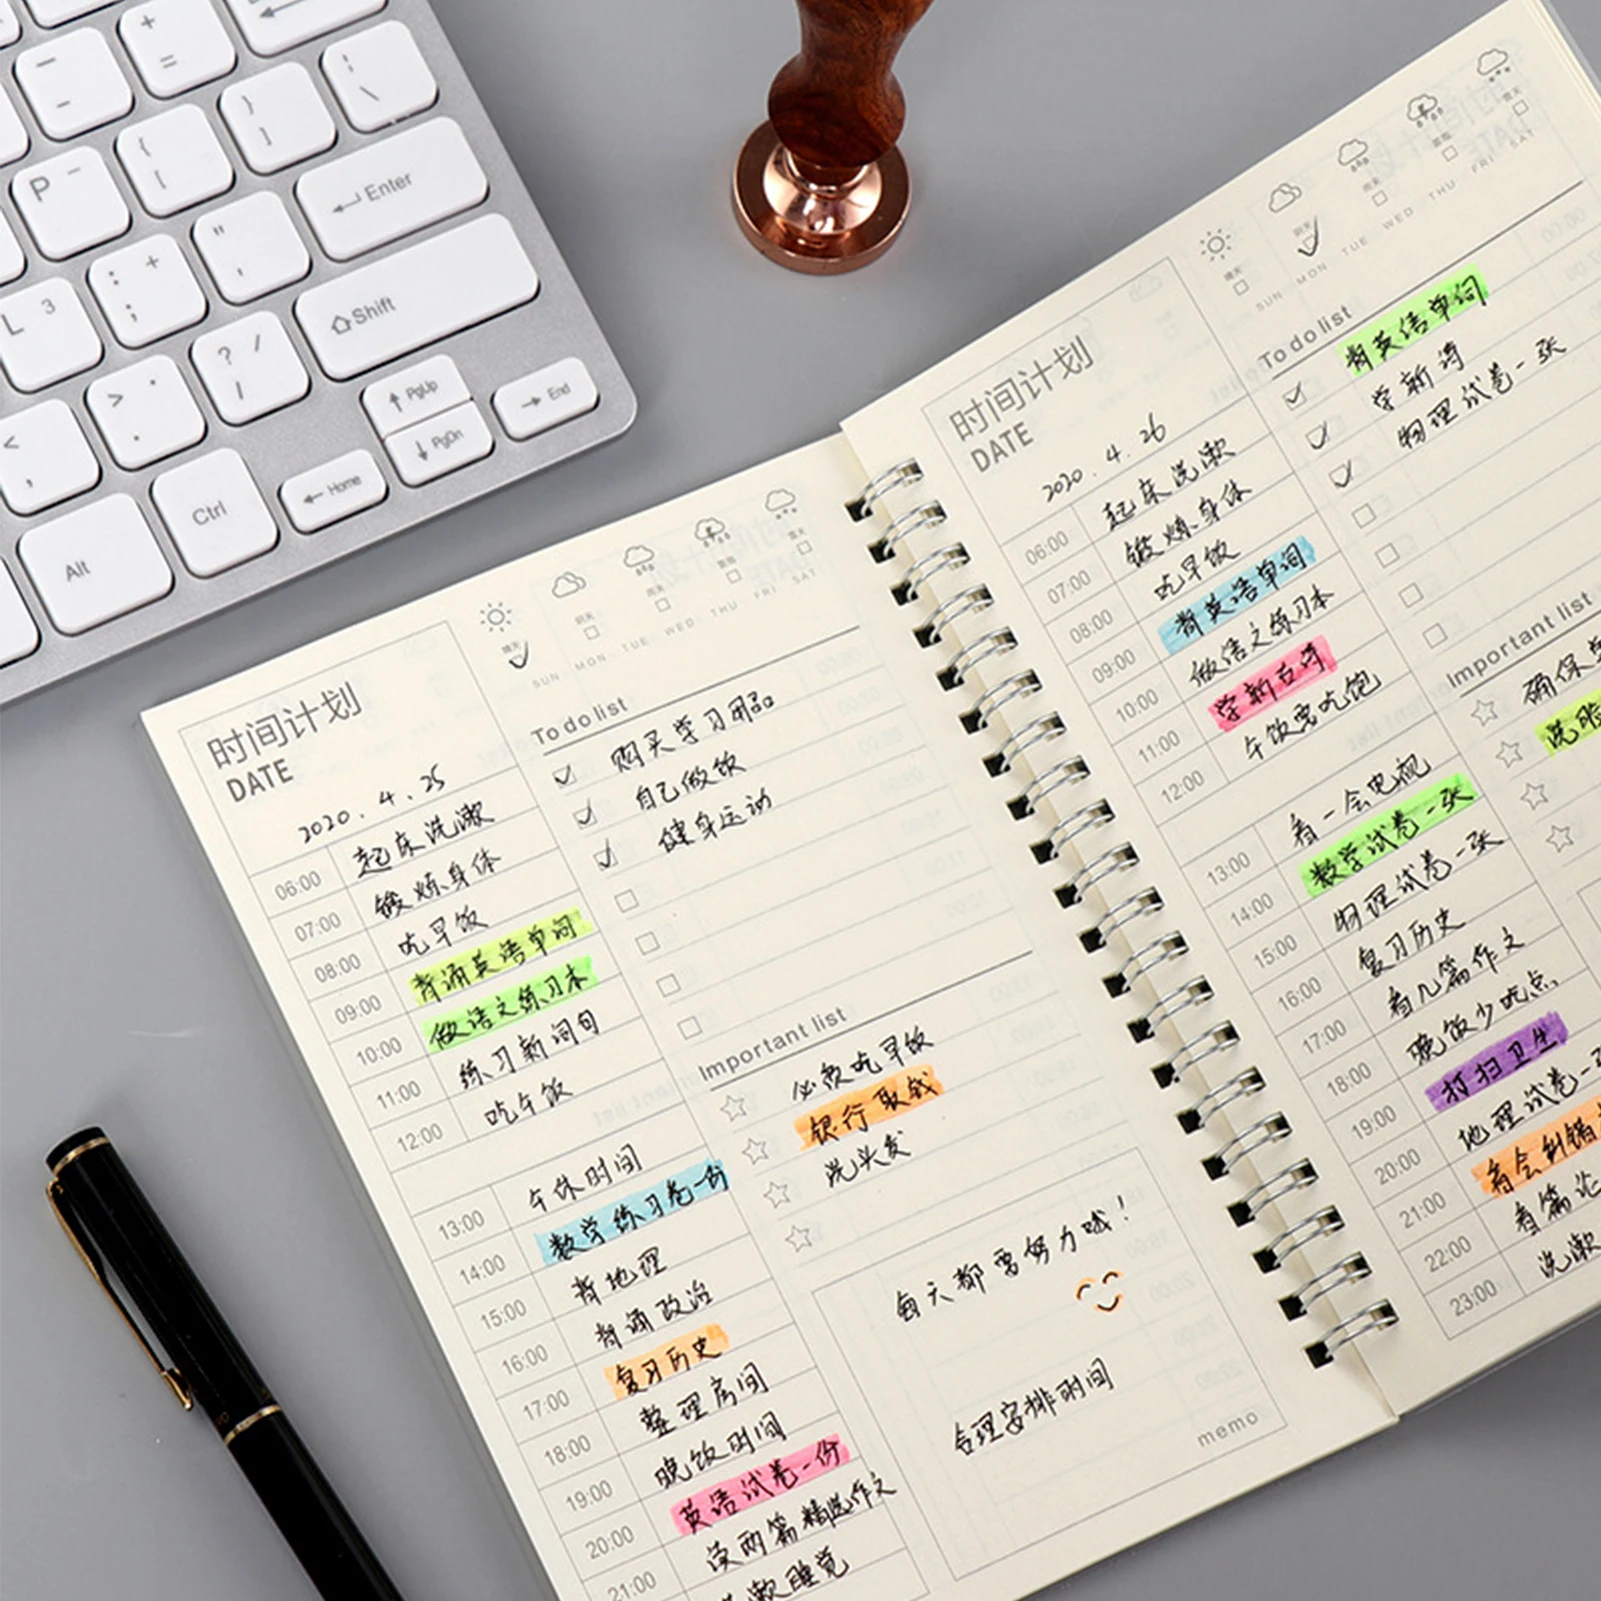 +
=
-
_
{
[
}
]
\
P
Enter
:
;
"
'
L 3
Shift
?
/
>
.
<
,
PgUp
PgDn
End
Home
Ctrl
Alt
时间计划
DATE
2020.4.25
晴天
阴天
雨天
雪天
SUN MON TUE WED THU FRI SAT
06:00 起床洗漱
07:00 锻炼身体
08:00 吃早饭
09:00 背诵英语单词
10:00 做语文练习本
11:00 练习新词句
12:00 吃午饭
午休时间
13:00 数学练习卷一份
14:00 背地理
15:00 背诵政治
16:00 复习历史
17:00 整理房间
18:00 晚饭时间
19:00 英语试卷一份
20:00 读两篇精选作文
21:00 洗漱睡觉
To do list
购买学习用品
自己做饭
健身运动
Important list
必须吃早饭
银行取钱
洗头发
每天都要努力哦！
合理安排时间
memo
时间计划
DATE
2020.4.26
晴天
阴天
雨天
雪天
SUN MON TUE WED THU FRI SAT
06:00 起床洗漱
07:00 锻炼身体
08:00 吃早饭
09:00 背英语单词
10:00 做语文练习本
11:00 学新古诗
12:00 午饭要吃饱
看一会电视
13:00 数学试卷一张
14:00 物理试卷一张
15:00 复习历史
16:00 看几篇作文
17:00 晚饭少吃点
18:00 打扫卫生
19:00 地理试卷一张
20:00 看会纠错
21:00 看篇论
22:00 洗漱
23:00
To do list
背英语单词
学新诗
物理试卷一张
Important list
确保
洗